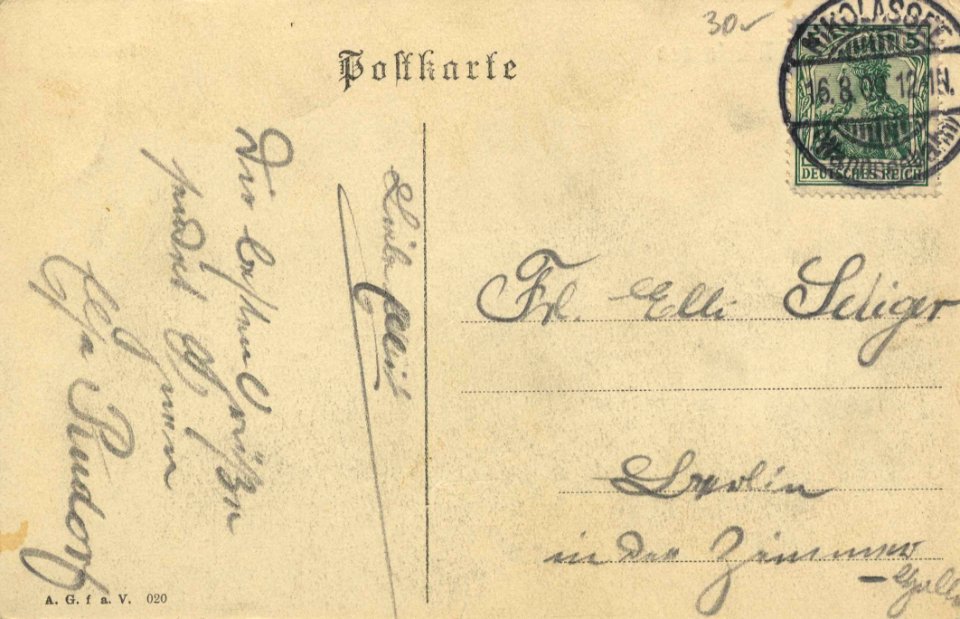 30
Postkarte
NIKOLASSEE
16.8. 12-1N.
5
DEUTSCHES REICH
Liebe Elli!
Die besten Grüßen
sendet Ihnen
Rudorf
Frl. Elli Seliger
Berlin
in der Zimmer
A. G. f a. V. 020